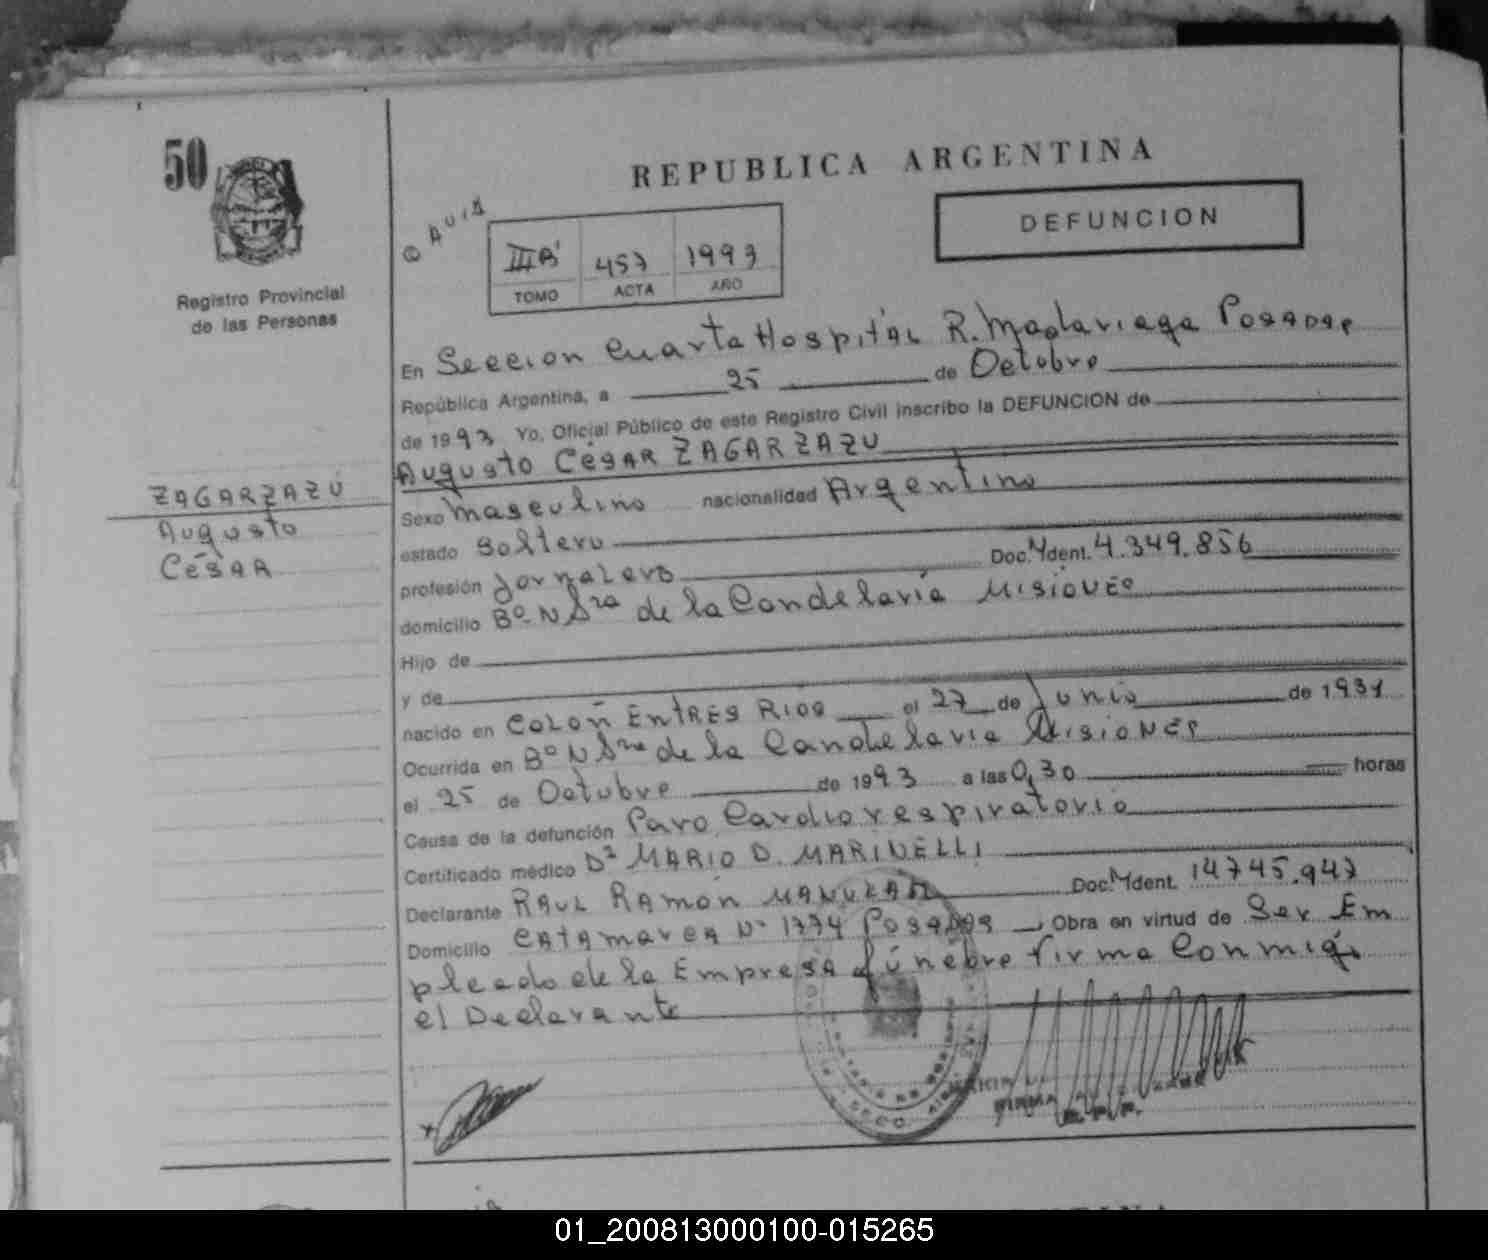 50
REPUBLICA ARGENTINA
DEFUNCION
AVIS
III B 457 1993
TOMO ACTA AÑO
Registro Provincial
de las Personas
En Seccion Cuarta Hospital R. Madariaga Posadas
República Argentina, a 25 de Octubre
de 1993 Yo, Oficial Público de este Registro Civil inscribo la DEFUNCION de
Augusto César ZAGARZAZU
ZAGARZAZÚ
Augusto
César
Sexo masculino nacionalidad Argentino
estado Soltero
profesión Jornalero Doc. Ident. 4.349.856
domicilio Bº N Sra de la Candelaria Misiones
Hijo de
y de
nacido en Colon Entres Rios el 27 de Junio de 1931
Ocurrida en Bº N Sra de la Candelaria Misiones
el 25 de Octubre de 1993 a las 0,30 horas
Causa de la defunción Paro Cardiorespiratorio
Certificado médico Dr MARIO D. MARINELLI
Declarante Raul Ramón Doc. Ident. 14745.947
Domicilio Catamarca Nº 1774 Posadas, Obra en virtud de Ser Em
pleado de la Empresa fúnebre firma Conmigo
el Declarante
01_200813000100-015265